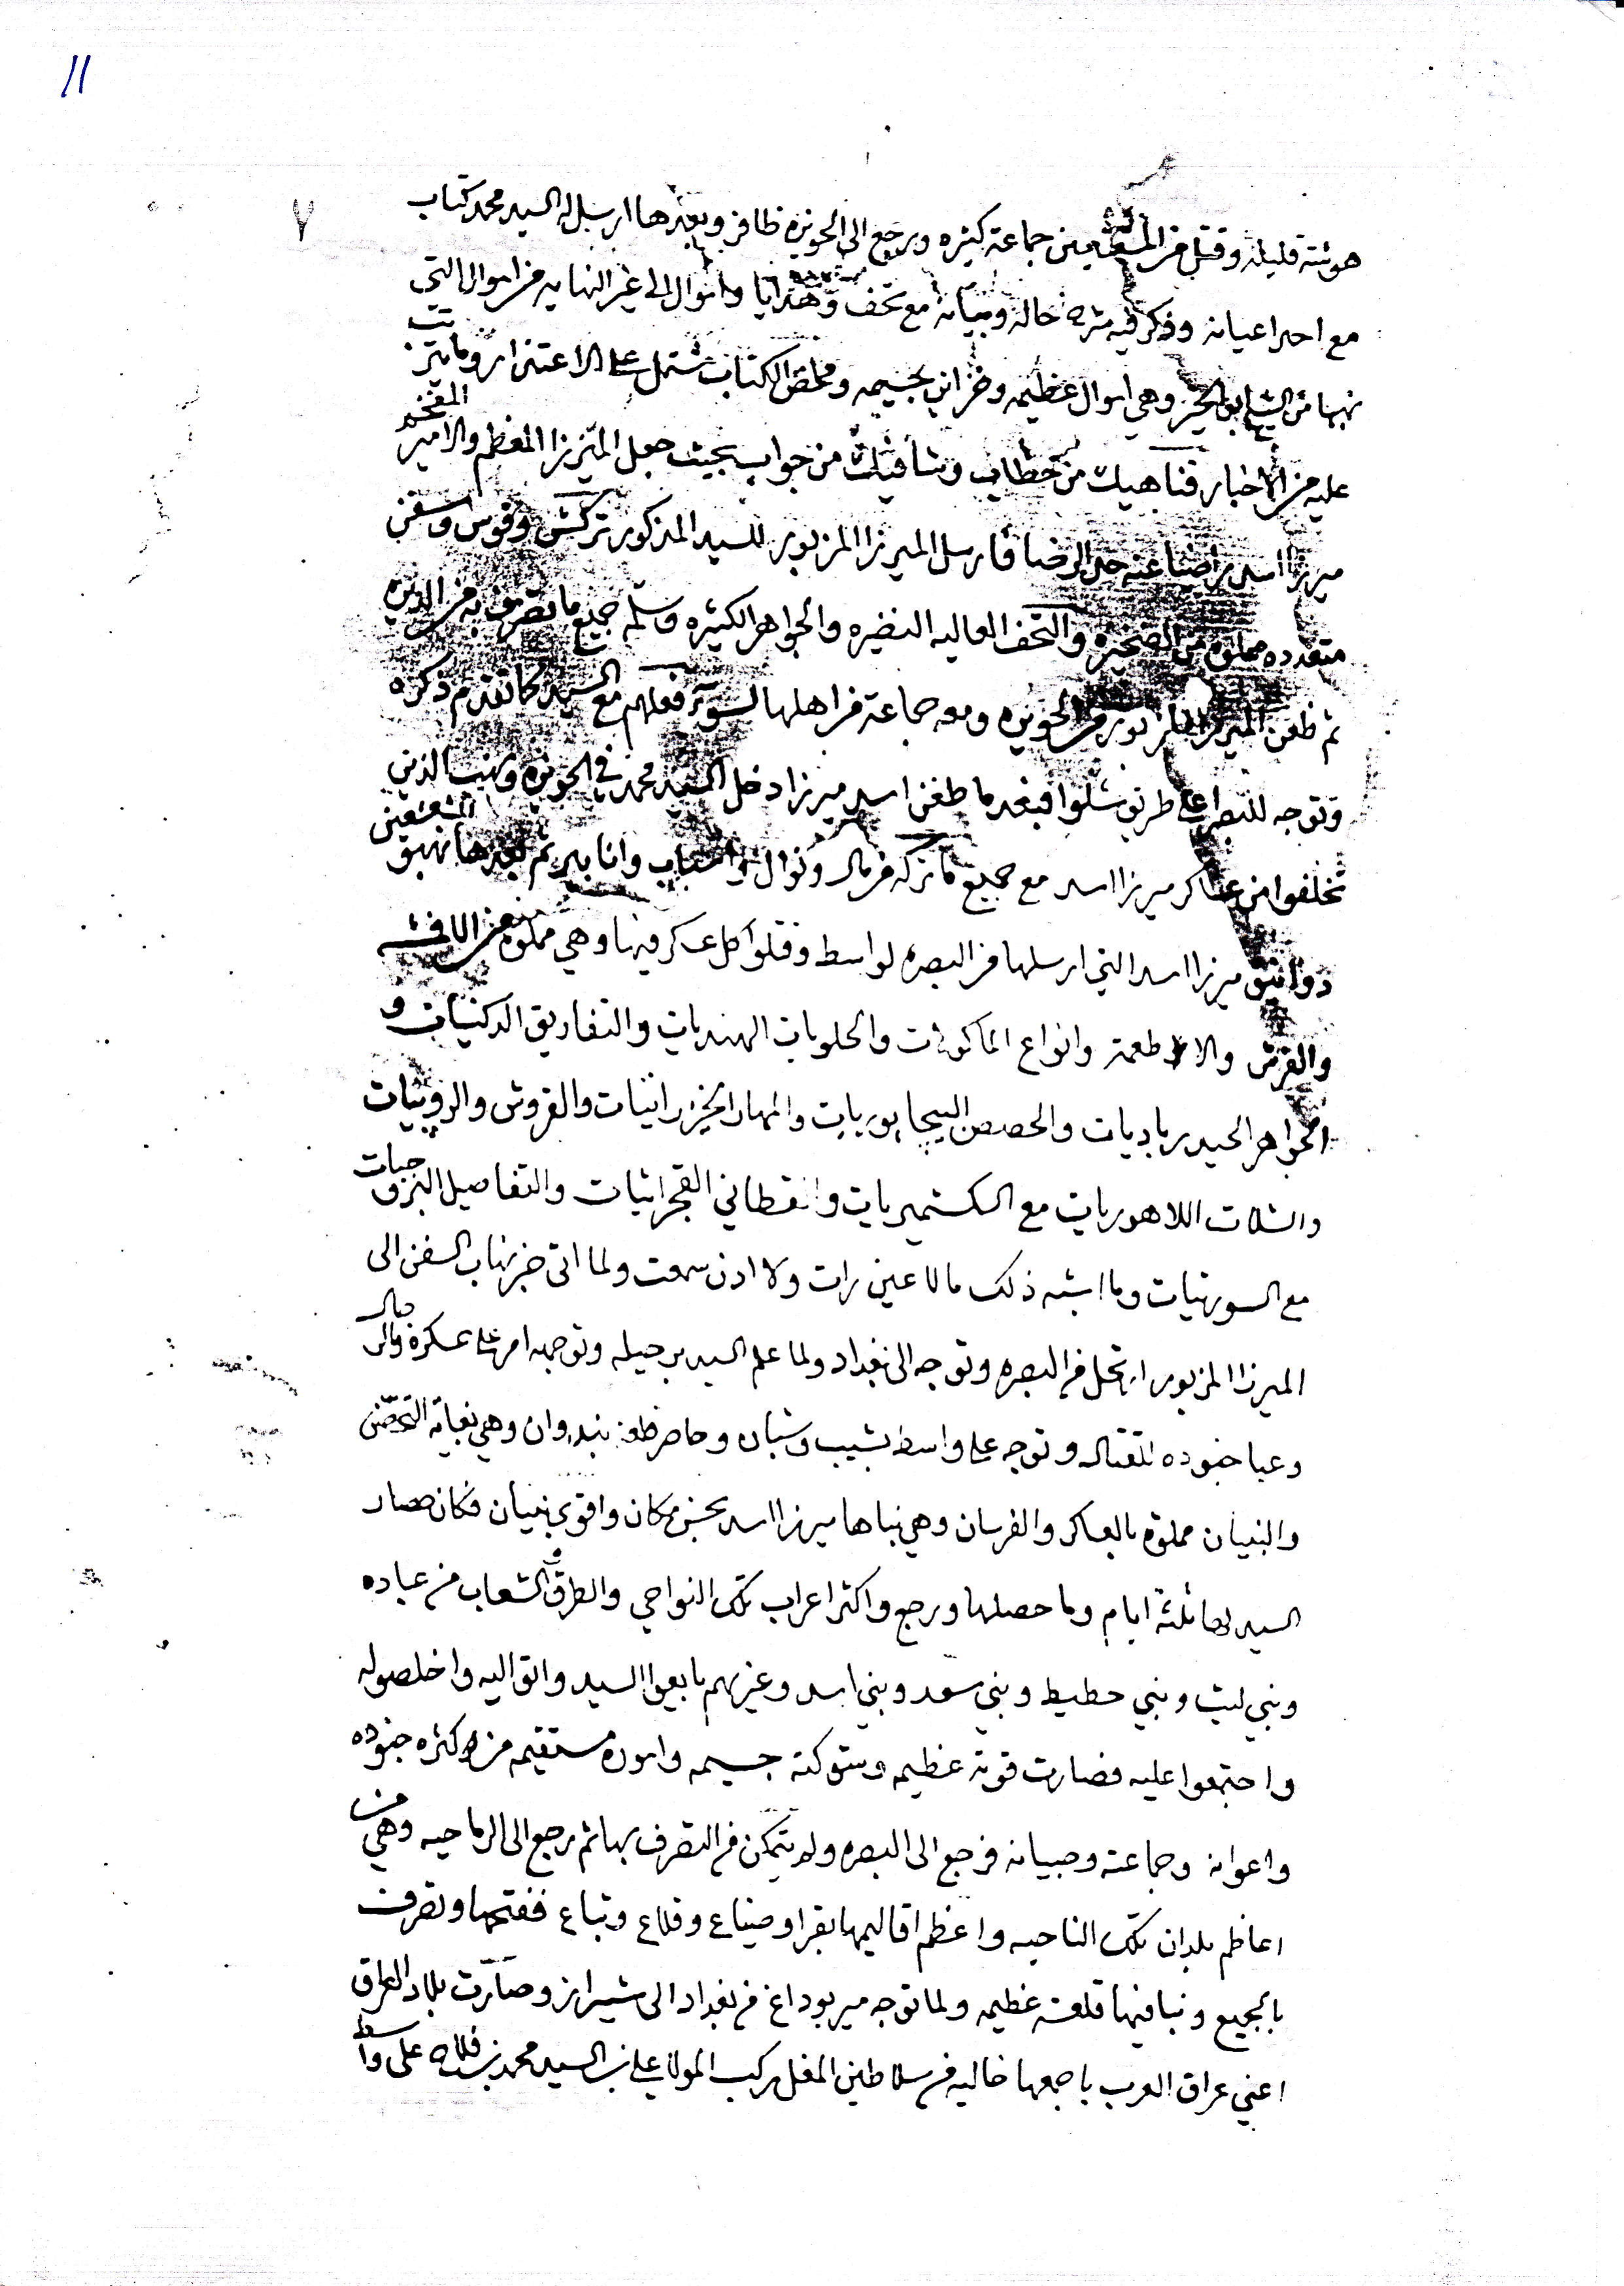 11
٧
هوشة قليلة وقتل من المشعشعين جماعة كثيره ورجع الى الحويزه ظافر وبعدها ارسل له السيد محمد كتاب
مع احد اعيانه وذكر فيه شرح حاله وبيانه مع تحف وهدايا واموال الى غير النهايه من اموال التي
نهبها من الشيخ ابو الخير وهي اموال عظيمه وخزاين جسيمه وملخص الكتاب مشتمل على الاعتذار وما يترتب
عليه من الاخبار فناهيك من خطاب وشافيك من جواب بحيث جعل الميرزا المعظم والامير المفخم
ميرزا اسد راضيا عنه حد الرضا فارسل الميرزا المزبور للسيد المذكور تركش وقوس وسفن
متعدده مملوه من الذخيره والتحف العاليه النضيره والجواهر الكثيره وسلم جميع ما تصرف به من الديره
ثم ظعن الميرزا المزبور من الحويزه ومعه جماعة من اهلها لسوء فعلهم مع السيد كما تقدم ذكره
وتوجه للبصره على طريق شلوا فبعد ما ظعن اسد ميرزا دخل السيد محمد في الحويزه ونهب الذين
تخلفوا من عساكر ميرزا اسد مع جميع ما تركه من مال ونوال واسباب وانابير ثم بعدها نهبو المشعشعين
دوانيق ميرزا اسد التي ارسلها من البصره لواسط وقتلوا كل عسكر فيها وهي مملوه من الاقمشه
والفرش والاطعمة وانواع الماكولات والحلويات الهنديات والتفاريق الدكنيات و
الجواهر الحيدرباديات والحصص البيجابوريات والمهار الخيزرانيات والقروش والروبيات
والشلات اللاهوريات مع الكشميريات والقطاني القجراتيات والتفاصيل البروجيات
مع السورتيات وما اشبه ذلك ما لا عين رات ولا اذن سمعت ولما اتى خبر نهاب السفن الى
الميرزا المزبور ارتحل من البصره وتوجه الى بغداد ولما علم السيد برحيله وتوجهه امر على عسكره
وعبا جنوده للقتال وتوجه على واسط بشيب وشبان وحاصر قلعة بندوان وهي بغاية التحصن
والبنيان مملوه بالعساكر والفرسان وهي بناها ميرزا اسد بحسن مكان واقوى بنيان فكان حصار
السيد لها ثلثة ايام وما حصلها ورجع واكثر اعراب تلك النواحي والطرق والشعاب من عباده
وبني ليث وبني حطيط وبني سعد وبني اسد وغيرهم بايعوا السيد واتوا اليه واخلصوله
واجتمعوا عليه فصارت قوة عظيمه وشوكة جسيمه واموره مستقيمه من كثره جنوده
واعوانه وجماعته وصبيانه فرجع الى البصره ولم يتمكن من التصرف بها ثم رجع الى الرماحيه وهي من
اعاظم بلدان تلك الناحيه واعظم اقاليمها بقرا وضياع وقلاع وتباع ففتحها وتصرف
بالجميع وبنا فيها قلعة عظيمه ولما توجه مير بوداغ من بغداد الى شيراز وصارت بلاد العراق
اعني عراق العرب باجمعها خاليه من سلاطين المغل ركب المولا علي بن السيد محمد بن فلاح على واسط